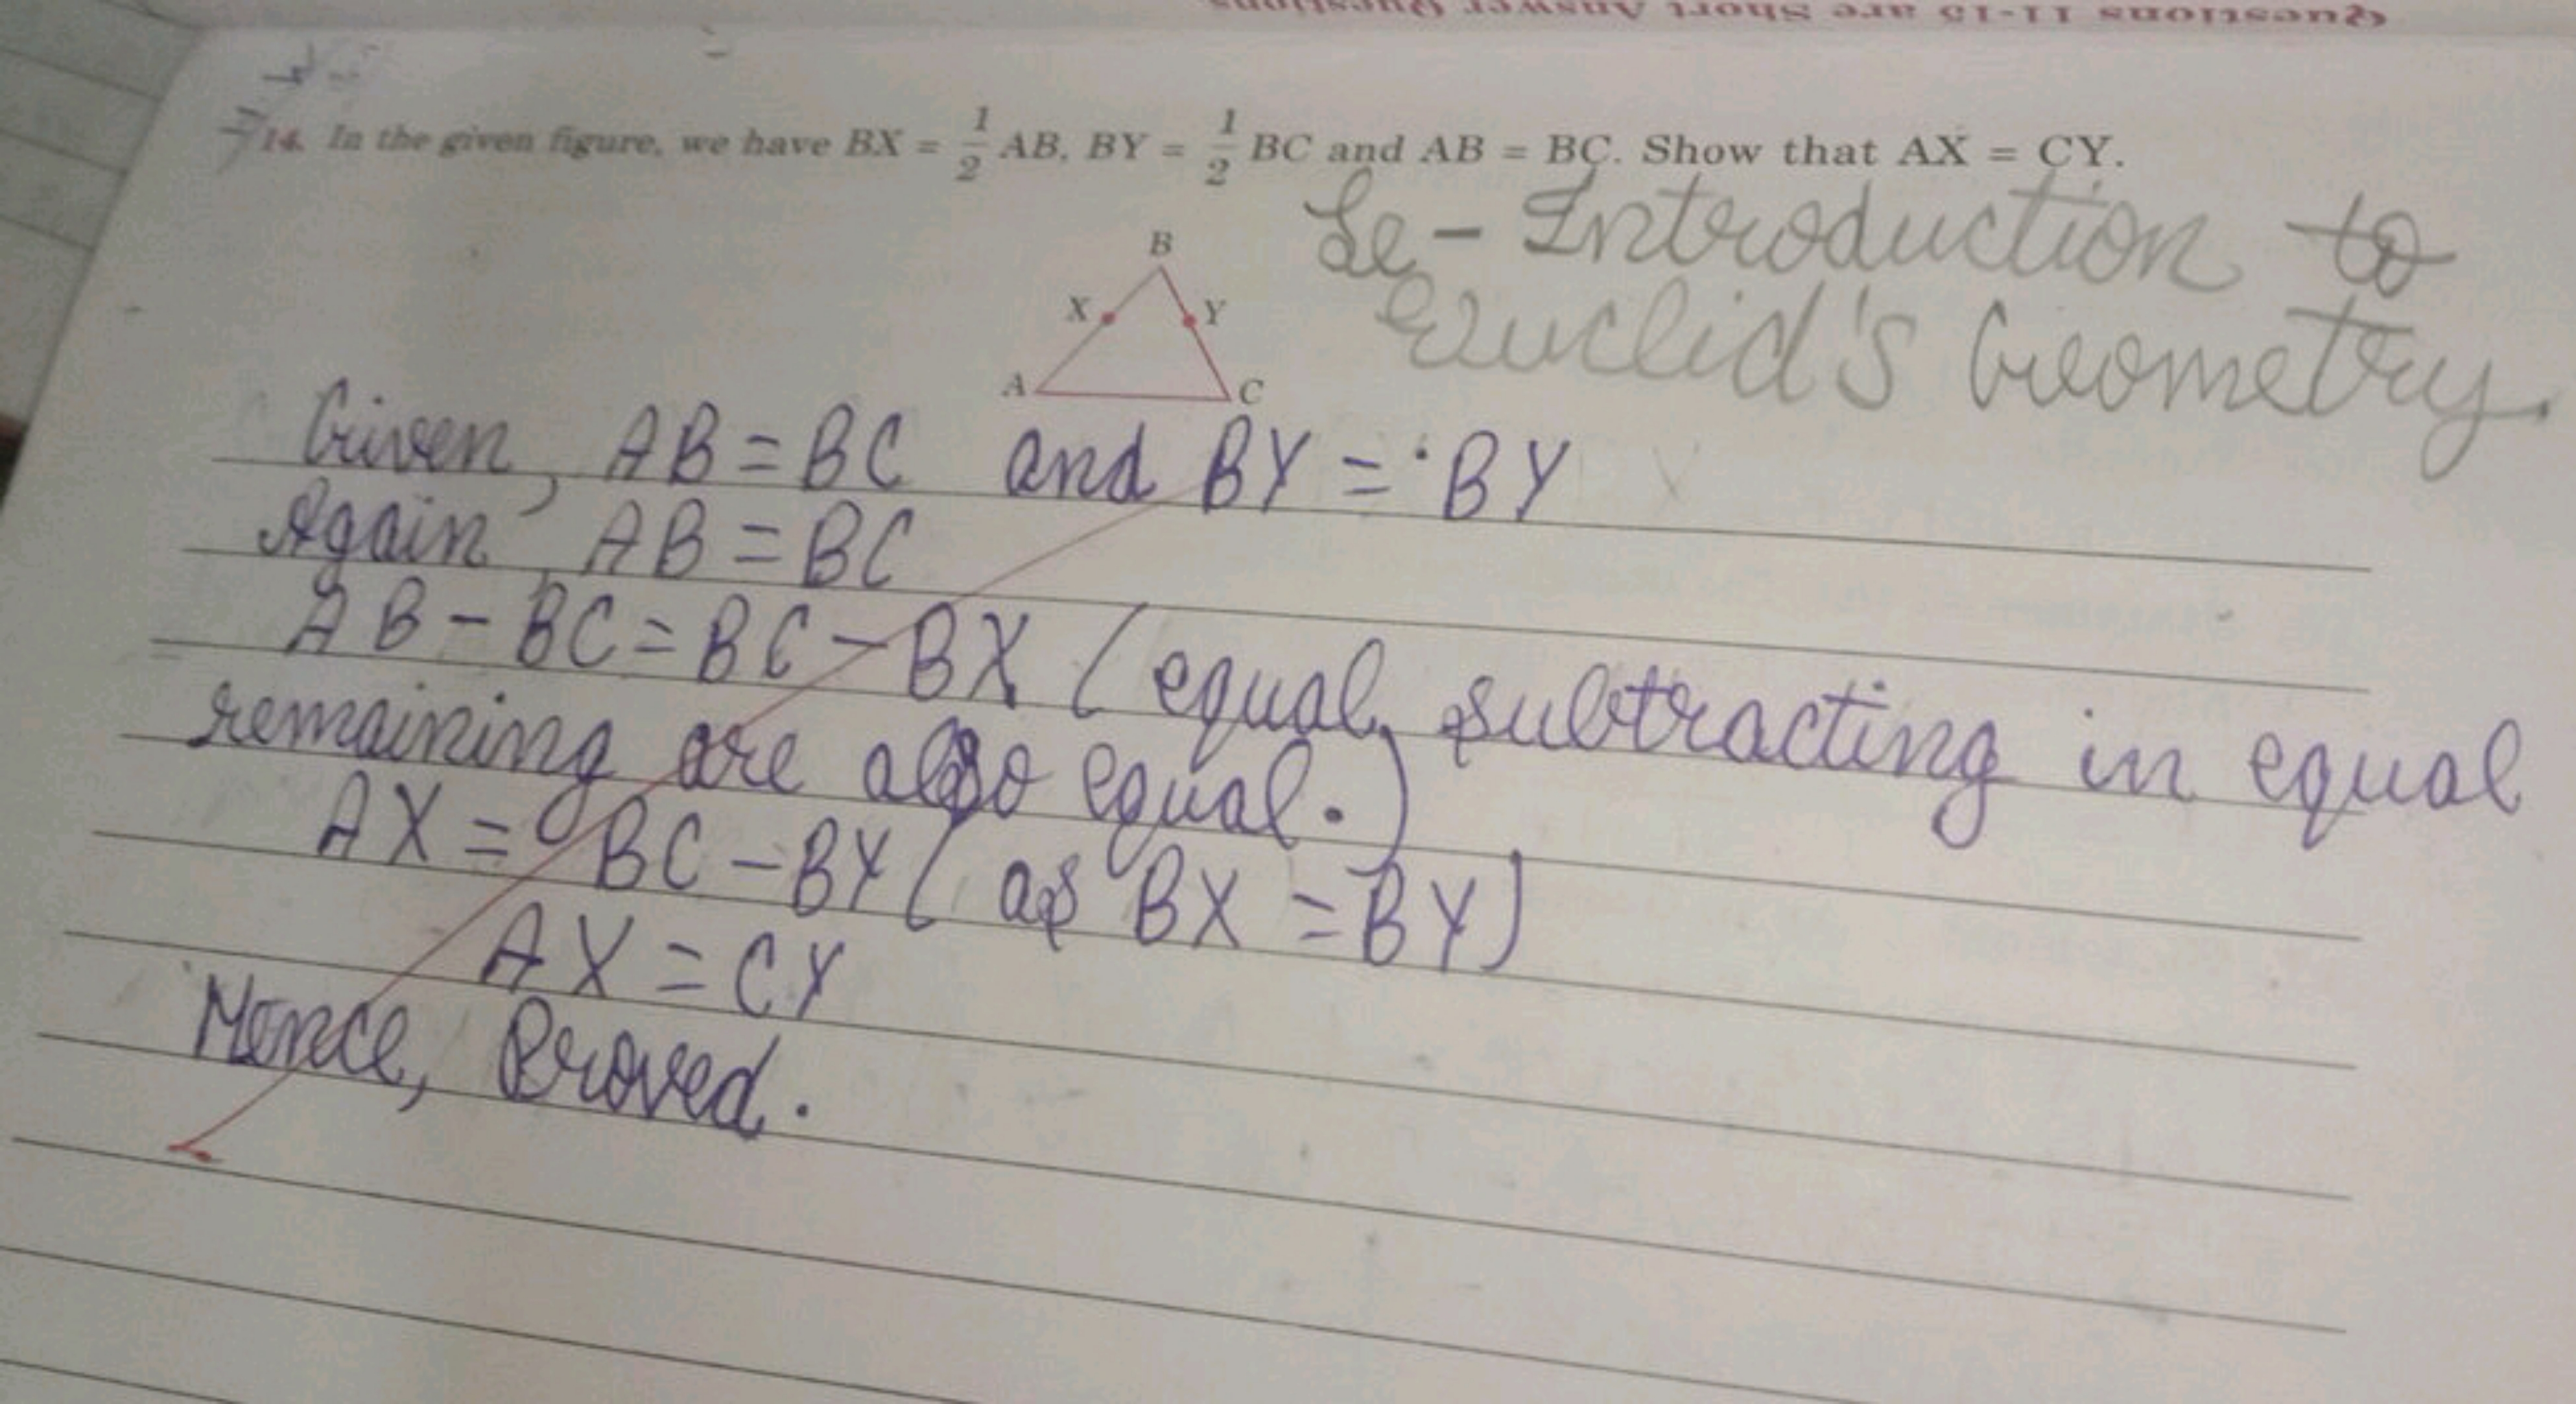 Questions 11-15 are Short Answer Questions
14. In the given figure, we have BX = 1/2 AB, BY = 1/2 BC and AB = BC. Show that AX = CY.
Le - Introduction to
Euclid's Geometry.
B
X
Y
A
C
Given, AB = BC and BY = BY
Again, AB = BC
AB - BC = BC - BX (equal, subtracting in equal
remaining are also equal.)
AX = BC - BY (as BX = BY)
AX = CY
Hence, Proved.